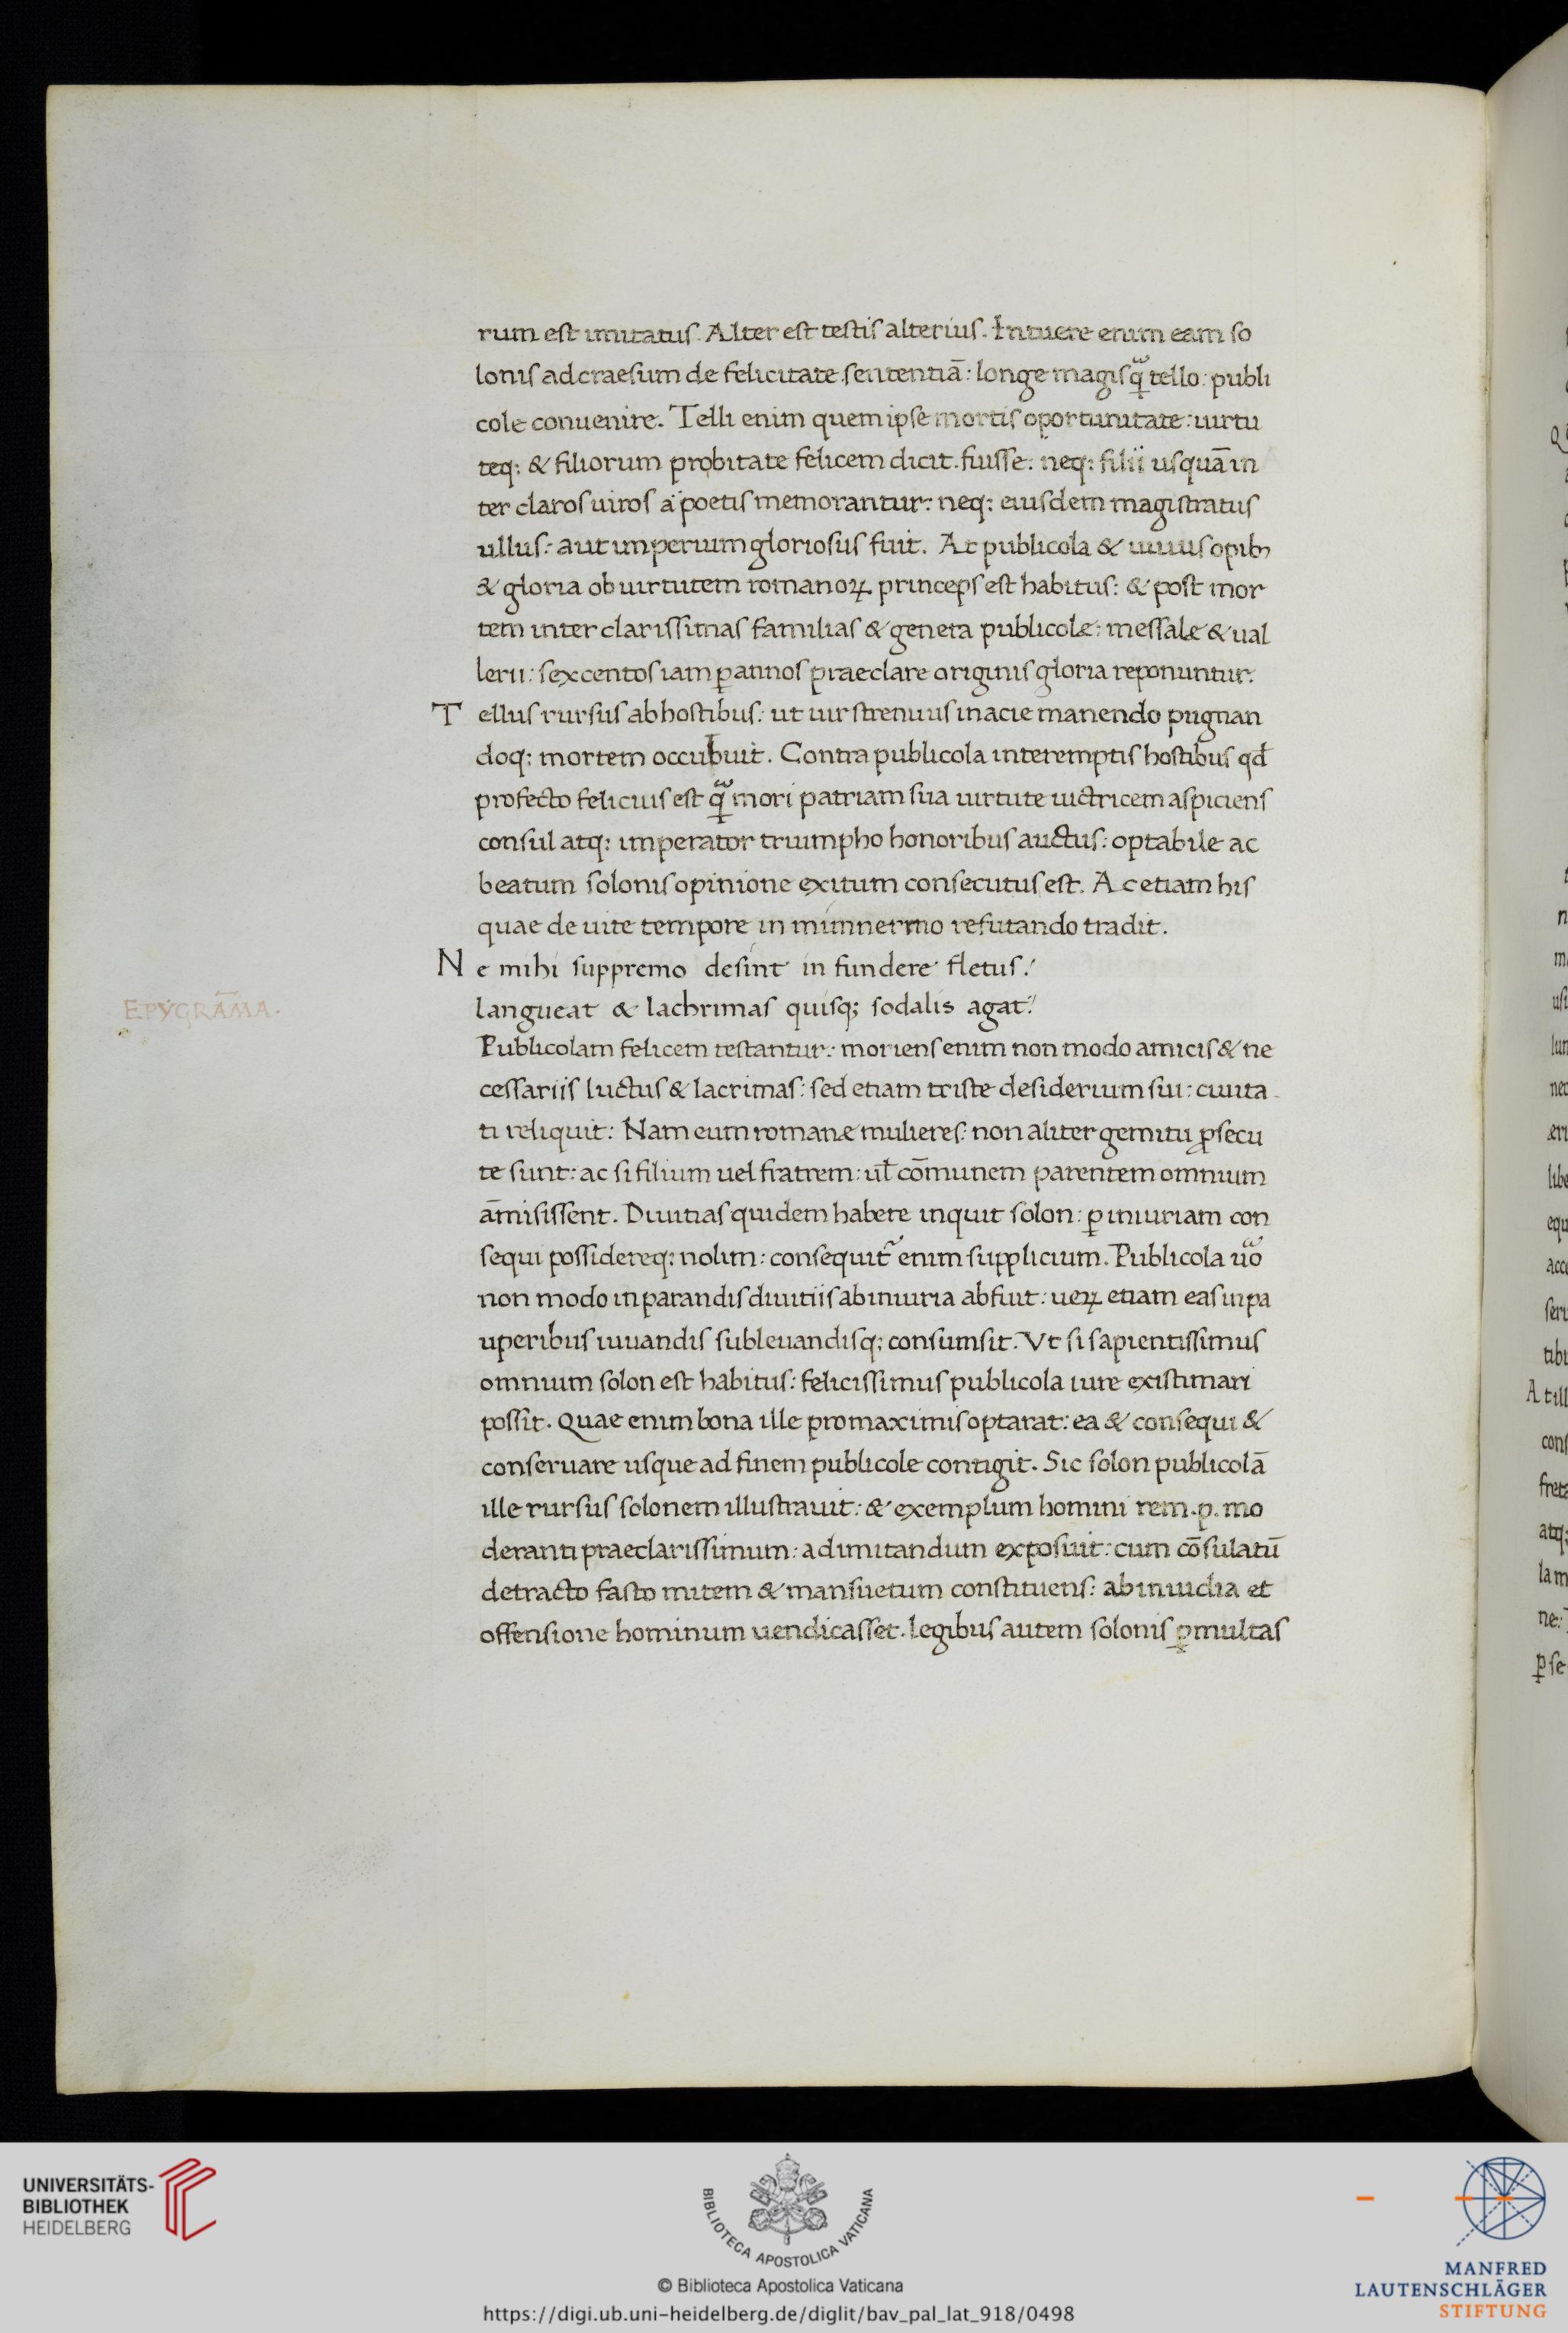 rum est imitatus. Alter est testis alterius. Intuere enim eam so
lonis ad craesum de felicitate sententiā: longe magis quā tello: publi
cole conuenire. Telli enim quem ipse mortis oportunitate: uirtu
teq: & filiorum probitate felicem dicit fuisse: neq: filii usquā in
ter claros uiros a poetis memorantur: neq: eiusdem magistratus
ullus: aut imperium gloriosus fuit. At publicola & uiuus opibꝫ
& gloria ob uirtutem romanoꝝ princeps est habitus: & post mor
tem inter clarissimas familias & genera publicole: messale & ual
lerii: sexcentos iam ꝑ annos praeclare originis gloria reponuntur.
Tellus rursus ab hostibus: ut uir strenuus in acie manendo pugnan
doq: mortem occubuit. Contra publicola interemptis hostibus qd̄
profecto felicius est qᷓ mori patriam sua uirtute uictricem aspiciens
consul atq: imperator triumpho honoribus auctus: optabile ac
beatum solonis opinione exitum consecutus est. Ac etiam his
quae de uite tempore in mimnermo refutando tradit.
Ne mihi suppremo desint in fundere fletus:
EPYGRAM̄A.
langueat & lachrimas quisq; sodalis agat:
Publicolam felicem testantur: moriens enim non modo amicis & ne
cessariis luctus & lacrimas: sed etiam triste desiderium sui: ciuita
ti reliquit: Nam eum romanæ mulieres: non aliter gemitu ꝓsecu
te sunt: ac si filium uel fratrem: ul̄ cōmunem parentem omnium
āmisissent. Diuitias quidem habere inquit solon: ꝑ iniuriam con
sequi possidereq: nolim: consequit᷑ enim supplicium. Publicola uoᷓ
non modo in parandis diuitiis ab iniuria abfuit: ueꝝ etiam eas in pa
uperibus iuuandis subleuandisq; consumsit. Vt si sapientissimus
omnium solon est habitus: felicissimus publicola iure existimari
possit. Quae enim bona ille pro maximis optarat: ea & consequi &
conseruare usque ad finem publicole contigit. Sic solon publicolā
ille rursus solonem illustrauit: & exemplum homini rem.p. mo
deranti praeclarissimum: ad imitandum exposuit: cum cōsulatū
detracto fasto mitem & mansuetum constituens: ab inuidia et
offensione hominum uendicasset. legibus autem solonis ꝑmultas
UNIVERSITÄTS-
BIBLIOTHEK
HEIDELBERG
BIBLIOTECA APOSTOLICA VATICANA
© Biblioteca Apostolica Vaticana
https://digi.ub.uni-heidelberg.de/diglit/bav_pal_lat_918/0498
MANFRED
LAUTENSCHLÄGER
STIFTUNG